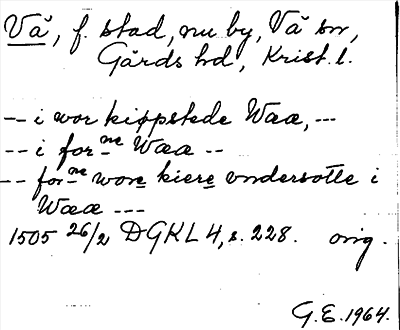 Vä, f. stad, nu by, Vä sn,
Gärds hd, Krist. l.
-- i wor kiøpstede Wææ, ---
-- i forne Wææ --
-- forne wore kiere vndersotte i
Wææ ---
1505 26/2 DGKL 4, s. 228. orig.
G.E. 1964.